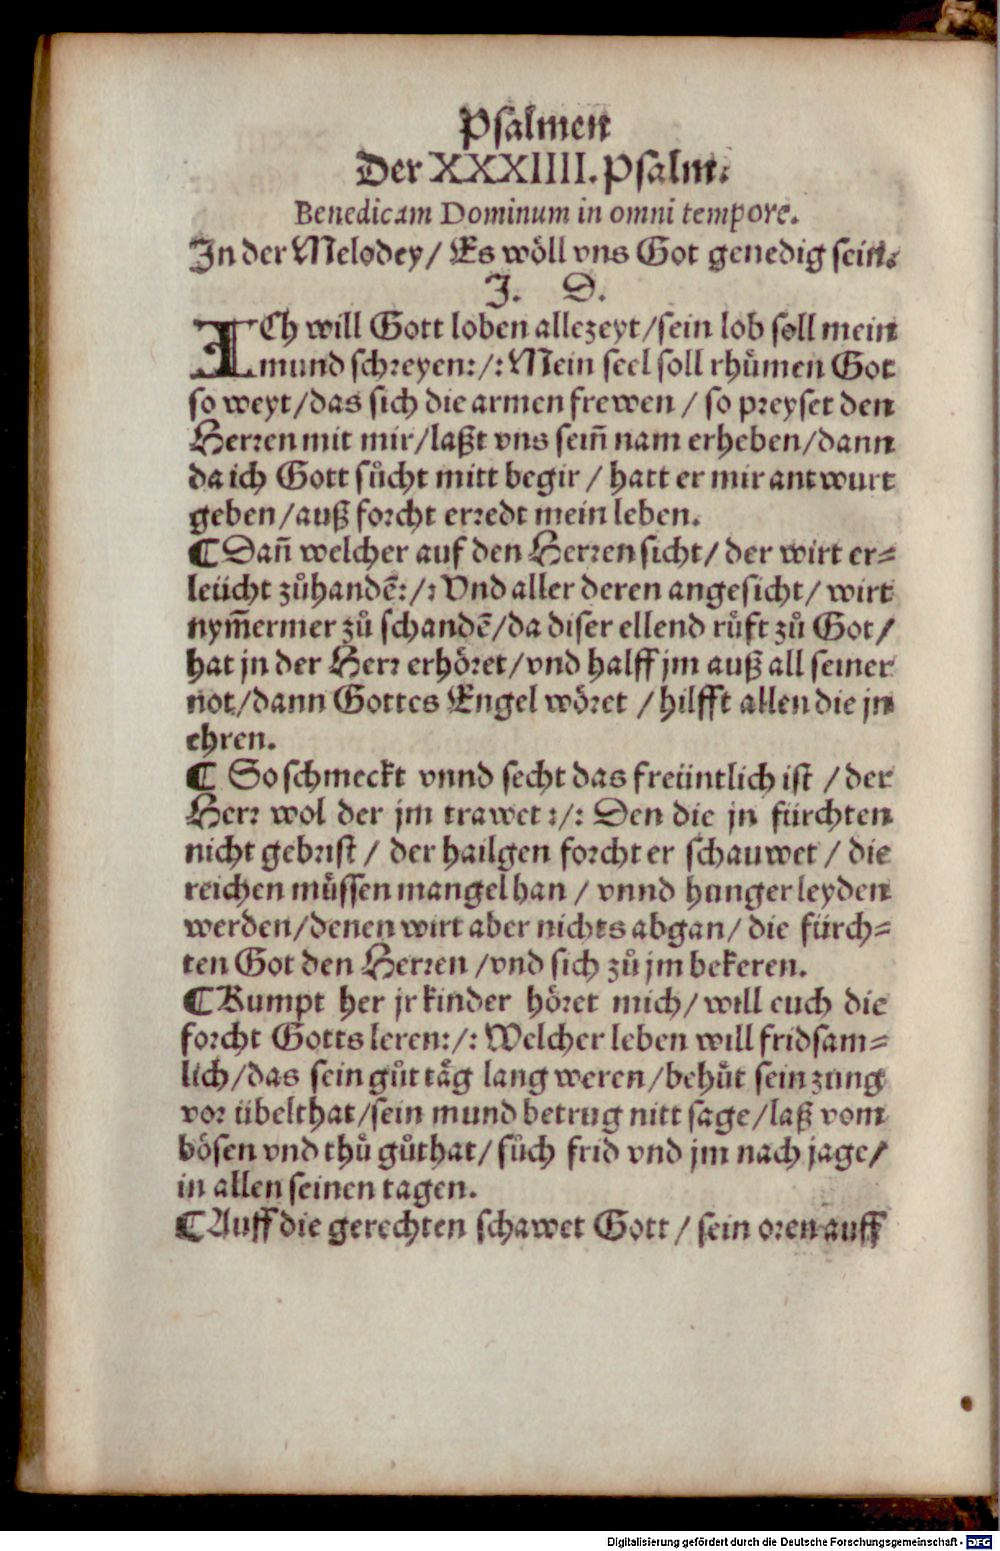 Psalmen
Der XXXIIII. Psalm.
Benedicam Dominum in omni tempore.
In der Melodey/ Es wöll vns Got genedig sein.
J. D.
ICh will Gott loben allezeyt/sein lob soll mein
mund schreyen:/: Mein seel soll rhůmen Got
so weyt/das sich die armen frewen / so preyset den
Herren mit mir/laßt vns sein̄ nam erheben/dann
da ich Gott sůcht mitt begir / hatt er mir antwurt
geben/auß forcht erredt mein leben.
¶ Dan̄ welcher auf den Herren sicht/ der wirt er=
leücht zůhandē:/: Vnd aller deren angesicht/ wirt
nym̄ermer zů schandē/da diser ellend růft zů Got/
hat jn der Herr erhöret/vnd halff jm auß all seiner
not/dann Gottes Engel wöret / hilfft allen die jn
ehren.
¶ So schmeckt vnnd secht das freüntlich ist / der
Herr wol der jm trawet :/: Den die jn fürchten
nicht gebrist / der hailgen forcht er schauwet / die
reichen müssen mangel han / vnnd hunger leyden
werden/denen wirt aber nichts abgan/ die fürch=
ten Got den Herren /vnd sich zů jm bekeren.
¶ Kumpt her jr kinder höret mich/ will euch die
forcht Gotts leren:/: Welcher leben will fridsam=
lich/das sein gůt tåg lang weren/behůt sein zung
vor übelthat/sein mund betrug nitt sage/laß vom
bösen vnd thů gůthat/ sůch frid vnd jm nach jage/
in allen seinen tagen.
¶ Auff die gerechten schawet Gott / sein oren auff
Digitalisierung gefördert durch die Deutsche Forschungsgemeinschaft - DFG